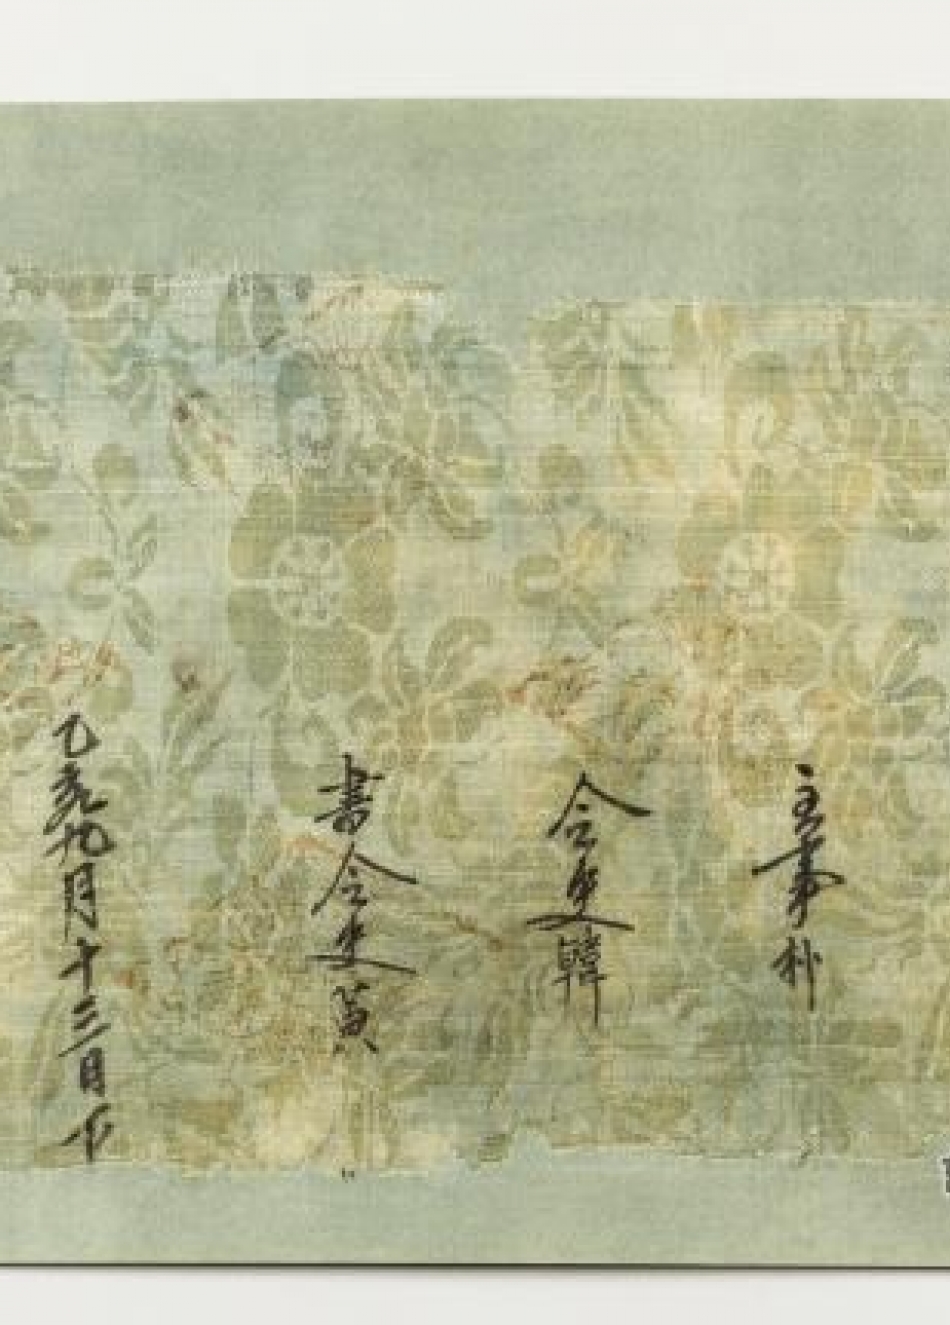 主事朴
令史韓
書令史黃
乙亥九月十三日下